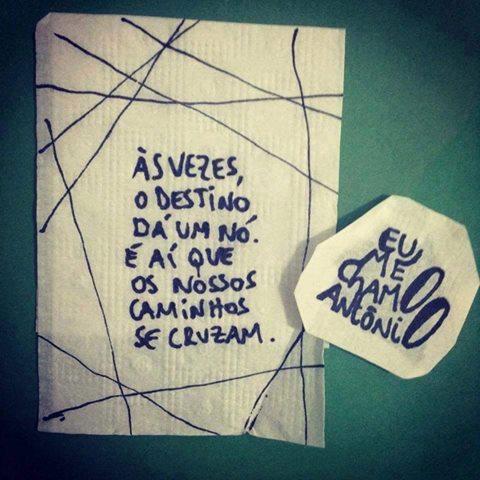 ÀS VEZES,
O DESTINO
DÁ UM NÓ.
É AÍ QUE
OS NOSSOS
CAMINHOS
SE CRUZAM.
EU
ME
CHAMO
ANTÔNIO